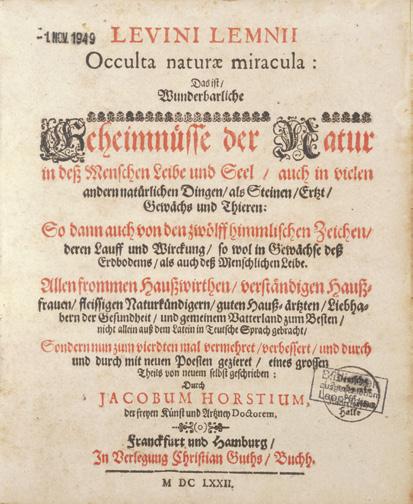 - 1. NOV. 1949
LEVINI LEMNII
Occulta naturæ miracula:
Das ist/
Wunderbarliche
Geheimnüsse der Natur
in deß Menschen Leibe und Seel / auch in vielen
andern natürlichen Dingen/ als Steinen/ Ertzt/
Gewächs und Thieren:
So dann auch von den zwölff himmlischen Zeichen/
deren Lauff und Wirckung/ so wol in Gewächse deß
Erdbodems/ als auch deß Menschlichen Leibe.
Allen frommen Haußwirthen/ verständigen Hauß-
frauen/ fleissigen Naturkündigern/ guten Hauß-ärtzten/ Liebha-
bern der Gesundheit / und gemeinem Vatterland zum Besten /
nicht allein auß dem Latein in Teutsche Sprach gebracht/
Sondern nun zum vierdten mal vermehret/ verbessert/ und durch
und durch mit neuen Poesien gezieret / eines grossen
Theils von neuem selbst geschrieben:
Durch
JACOBUM HORSTIUM,
der freyen Künst und Artzney Doctorem,
Franckfurt und Hamburg/
In Verlegung Christian Guths/ Buchh.
M DC LXXII.
Deutsche
Halle